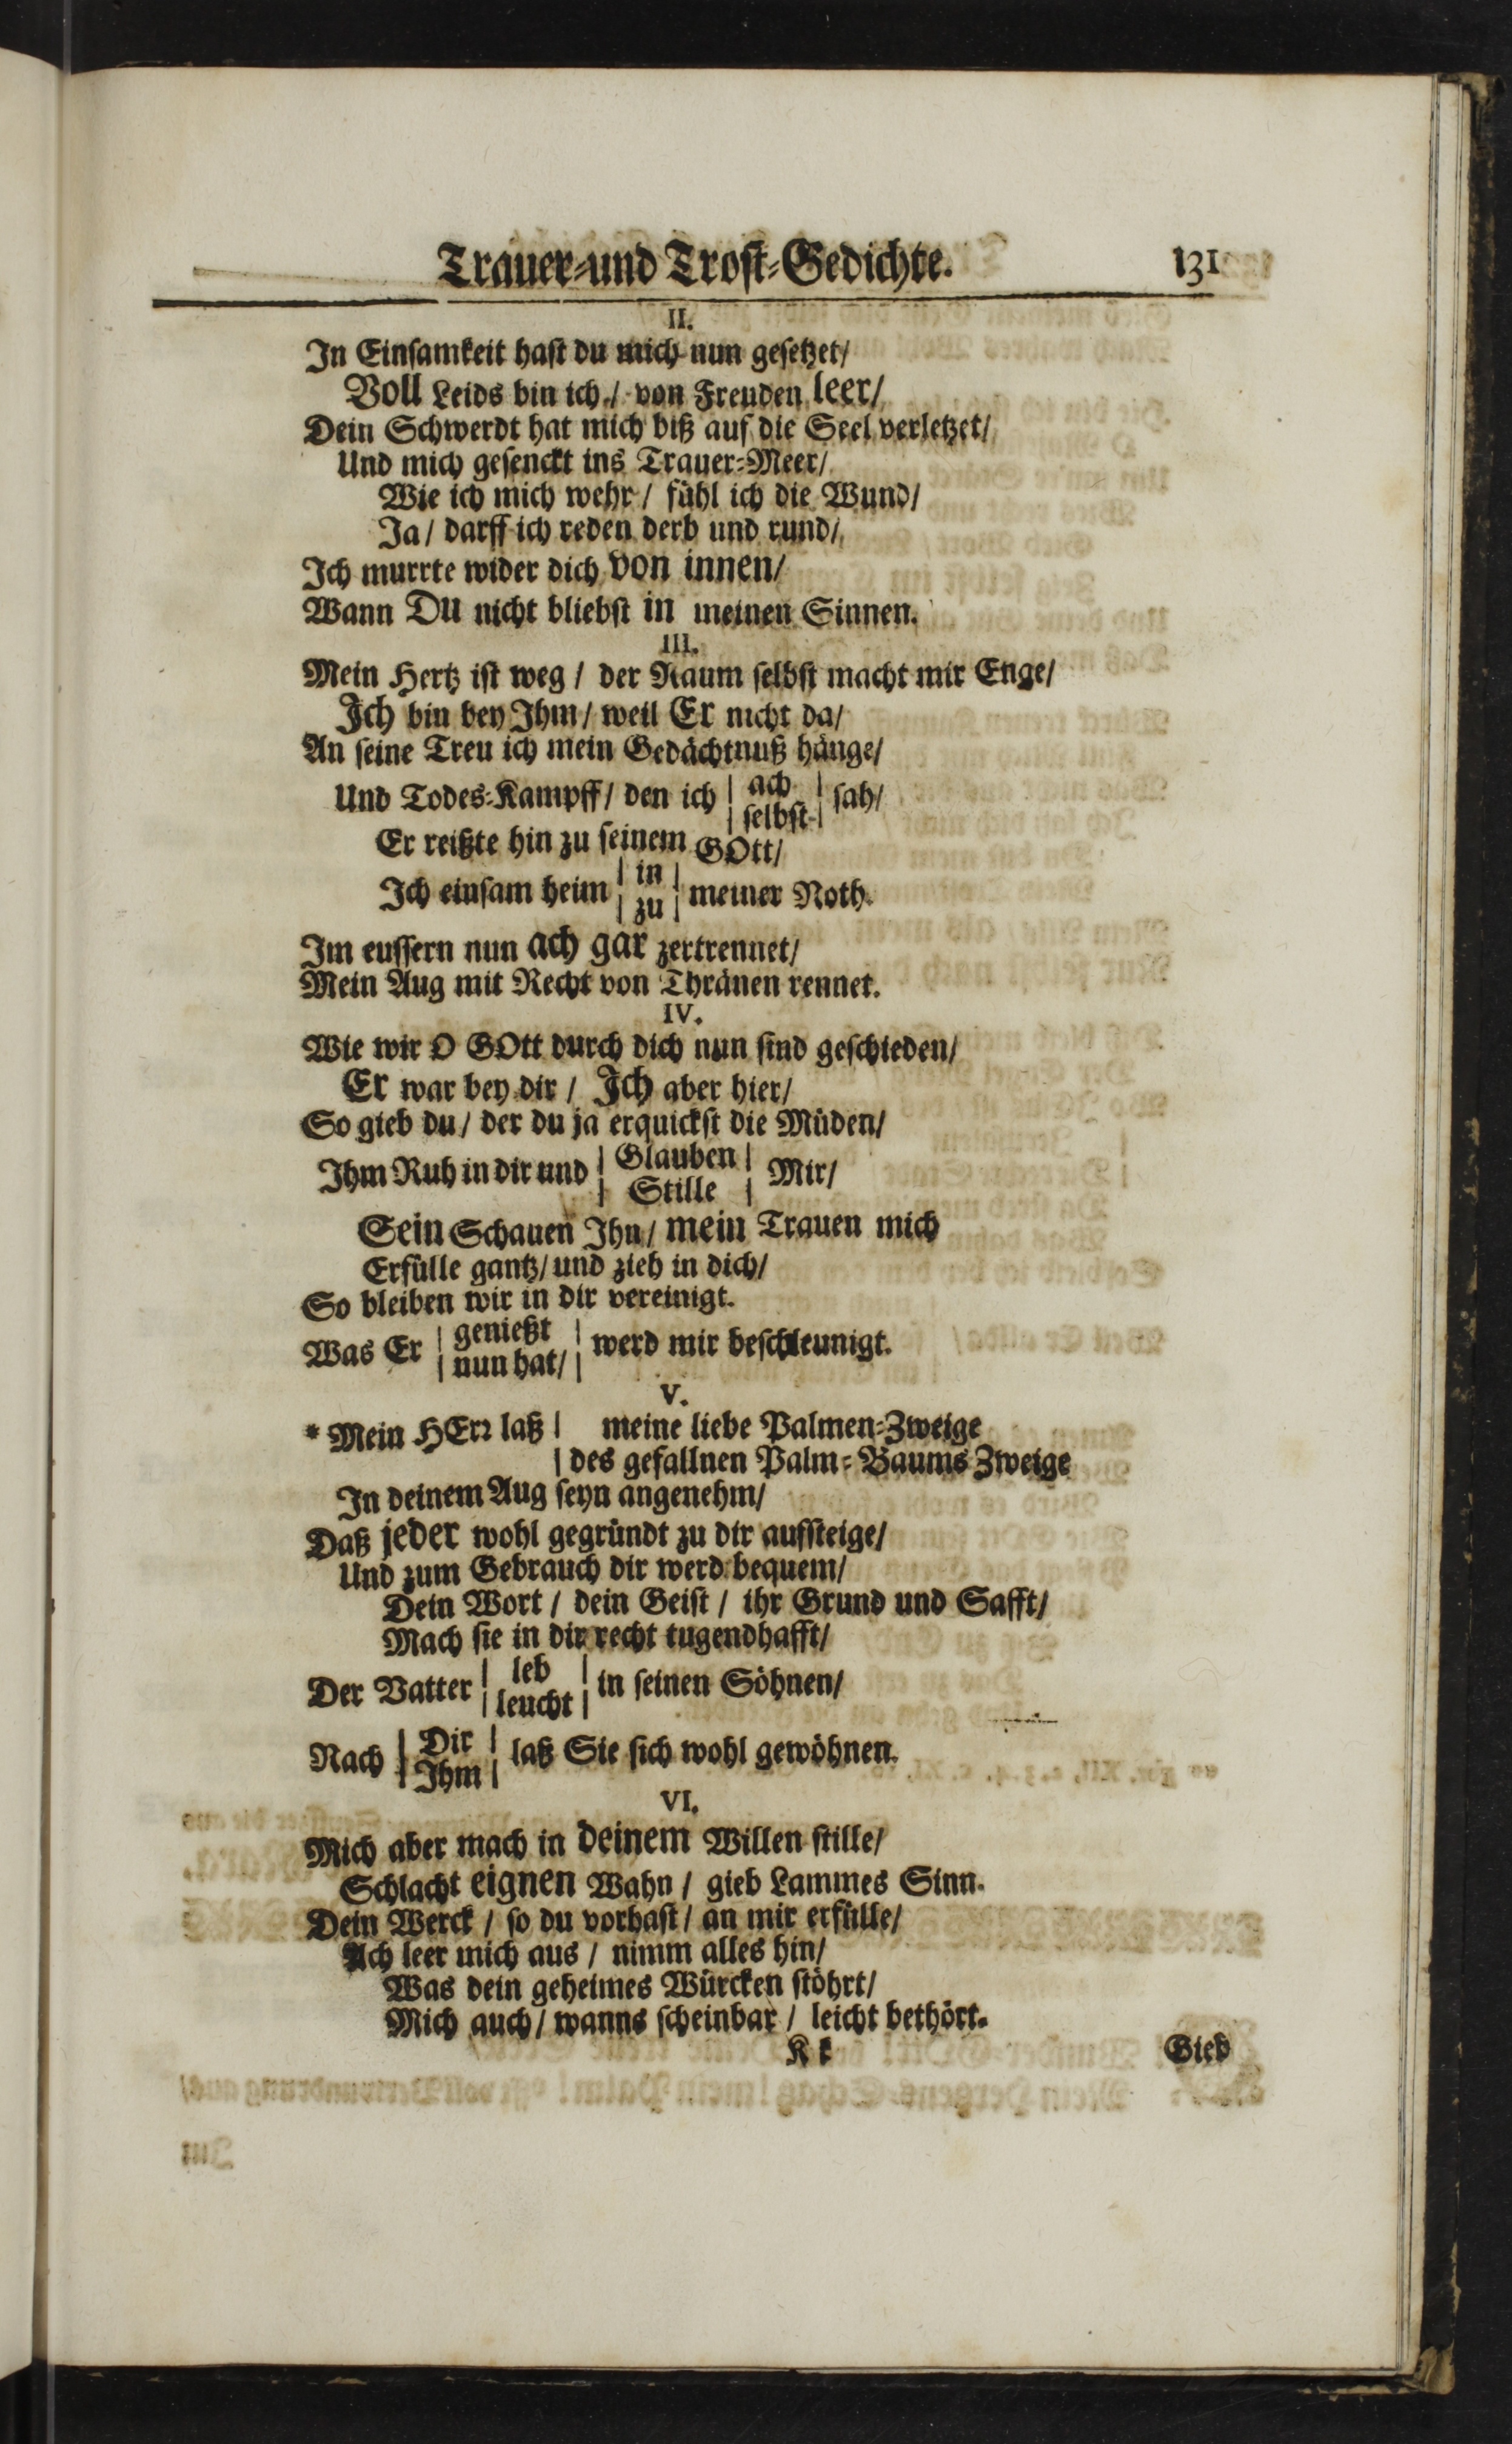 Trauer-und Trost-Gedichte. 131
II.
In Einsamkeit hast du mich nun gesetzet/
Voll Leids bin ich / von Freuden leer/
Dein Schwerdt hat mich biß auf die Seel verletzet/
Und mich gesenckt ins Trauer-Meer/
Wie ich mich wehr / fühl ich die Wund/
Ja / darff ich reden derb und rund/
Ich murrte wider dich von innen/
Wann Du nicht bliebst in meinen Sinnen.
III.
Mein Hertz ist weg / der Raum selbst macht mir Enge/
Ich bin bey Ihm / weil Er nicht da/
An seine Treu ich mein Gedächtnuß hänge/
Und Todes-Kampff / den ich | ach | sah/
| selbst |
Er reißte hin zu seinem GOtt/
Ich einsam heim | in | meiner Noth.
| zu |
Im eussern nun ach gar zertrennet/
Mein Aug mit Recht von Thränen rennet.
IV.
Wie wir O GOtt durch dich nun sind geschieden/
Er war bey dir / Ich aber hier/
So gieb du / der du ja erquickst die Müden/
Ihm Ruh in dir und | Glauben | Mir/
| Stille |
Sein Schauen Ihn / mein Trauen mich
Erfülle gantz / und zieh in dich/
So bleiben wir in dir vereinigt.
Was Er | genießt | werd mir beschleunigt.
| nun hat/ |
V.
* Mein HErr laß | meine liebe Palmen-Zweige
| des gefallnen Palm-Baums Zweige
In deinem Aug seyn angenehm/
Daß jeder wohl gegründt zu dir aufsteige/
Und zum Gebrauch dir werd bequem/
Dein Wort / dein Geist / ihr Grund und Safft/
Mach sie in dir recht tugendhafft/
Der Vatter | leb | in seinen Söhnen/
| leucht |
Nach | Dir | laß Sie sich wohl gewöhnen.
| Ihm |
VI.
Mich aber mach in deinem Willen stille/
Schlacht eignen Wahn / gieb Lammes Sinn.
Dein Werck / so du vorhast / an mir erfülle/
Ach leer mich aus / nimm alles hin/
Was dein geheimes Würcken stöhrt/
Mich auch / wanns scheinbar / leicht bethört.
K k Gieb